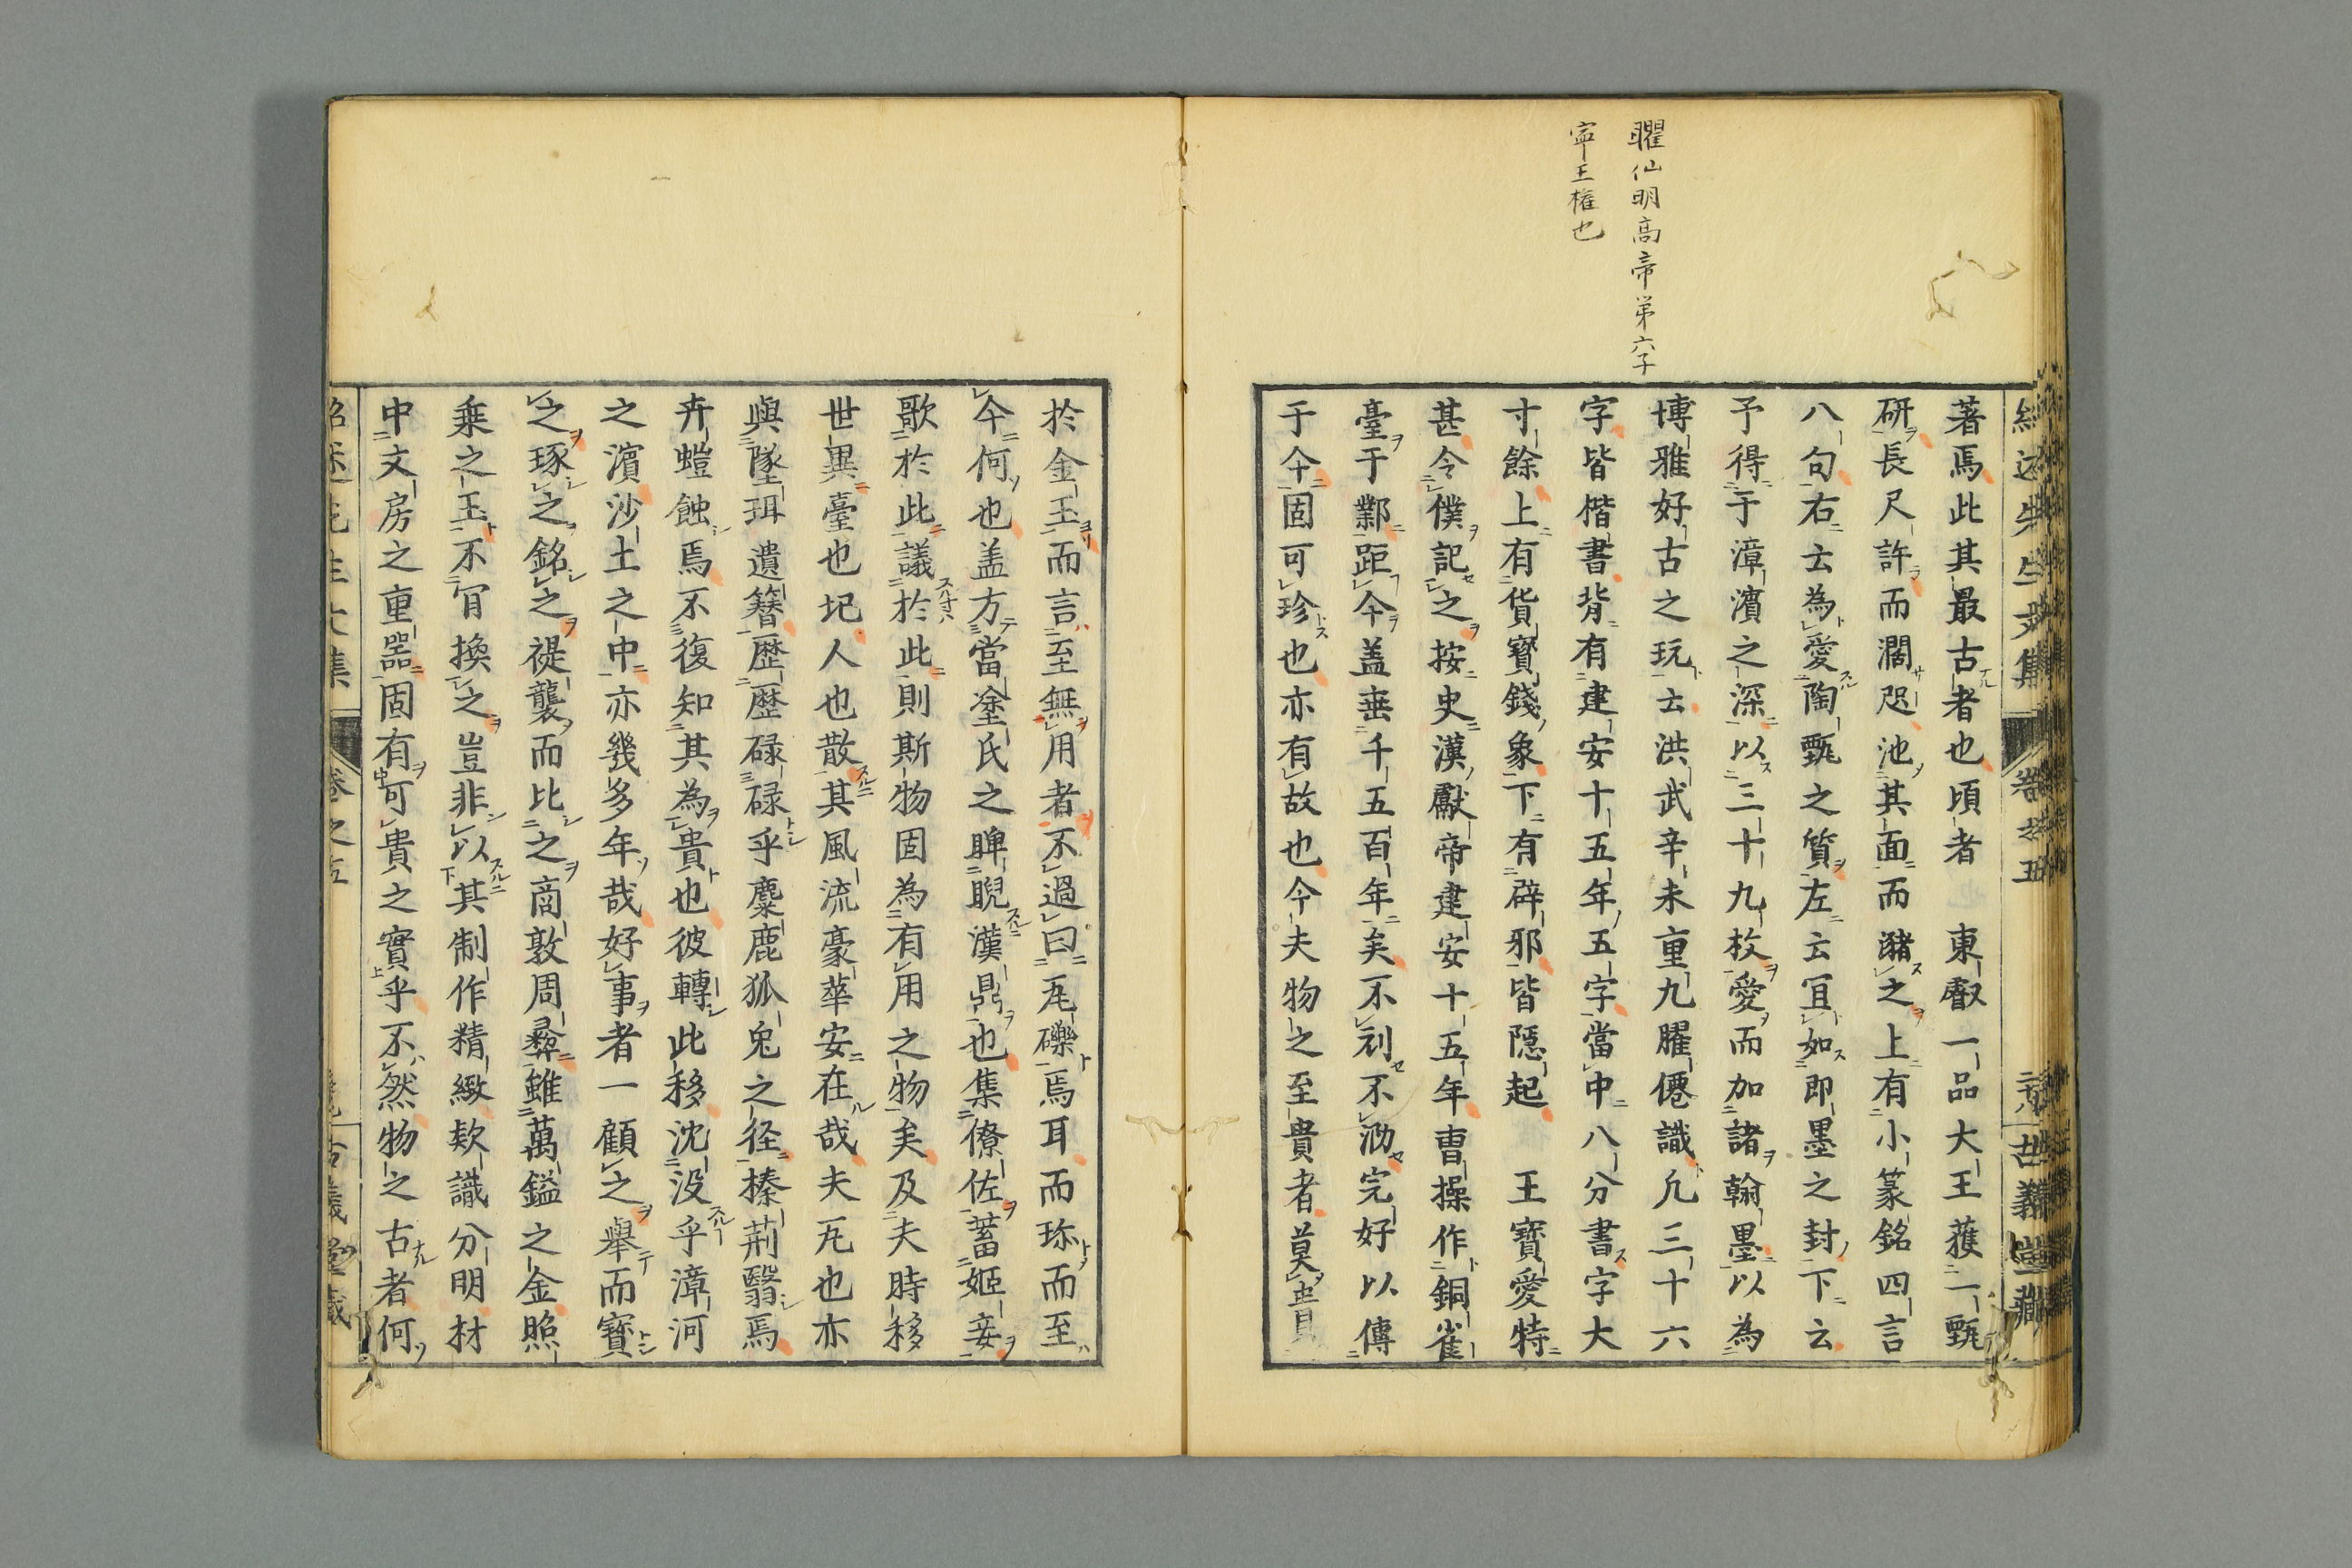 臞仙明高帝第六子
寧王權也
紹述先生文集 卷之五 二十八 古義堂藏
著焉此其最古者也頃者 東叡一品大王獲一甄
研長尺許而濶咫池其面而瀦之上有小篆銘四言
八句右云為愛陶甄之質左云冝如即墨之封下云
予得于漳濱之深以三十九枚愛而加諸翰墨以為
博雅好古之玩云洪武辛未重九臞僊識凢三十六
字皆楷書背有建安十五年五字當中八分書字大
寸餘上有貨寳錢象下有辟邪皆隱起 王寶愛特
甚令僕記之按史漢獻帝建安十五年曹操作銅雀
臺于鄴距今盖垂千五百年矣不刓不泐完好以傳
于今固可珍也亦有故也今夫物之至貴者莫貴
於金玉而言至無用者不過曰瓦礫焉耳而珎而至
今何也盖方當塗氏之睥睨漢鼎也集僚佐蓄姬妾
歌於此議於此則斯物固為有用之物矣及夫時移
世異臺也圮人也散其風流豪華安在哉夫瓦也亦
與墜珥遺簪歴歴碌碌乎麋鹿狐兔之径榛荊翳焉
卉螘蝕焉不復知其為貴也彼轉此移沈没乎漳河
之濱沙土之中亦幾多年哉好事者一顧之舉而寶
之琢之銘之禔襲而比之商敦周彝雖萬鎰之金照
乗之玉不肎換之豈非以其制作精緻欵識分明材
中文房之重器固有可貴之實乎不然物之古者何
紹述先生文集 卷之五 古義堂藏